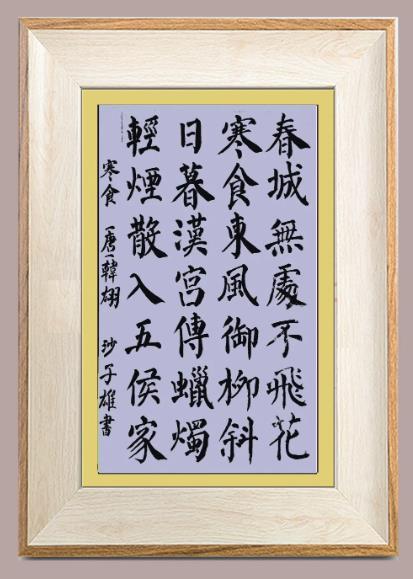 春城無處不飛花
寒食東風御柳斜
日暮漢宮傳蠟燭
輕煙散入五侯家
寒食 〔唐〕韓翃 沙子雄書